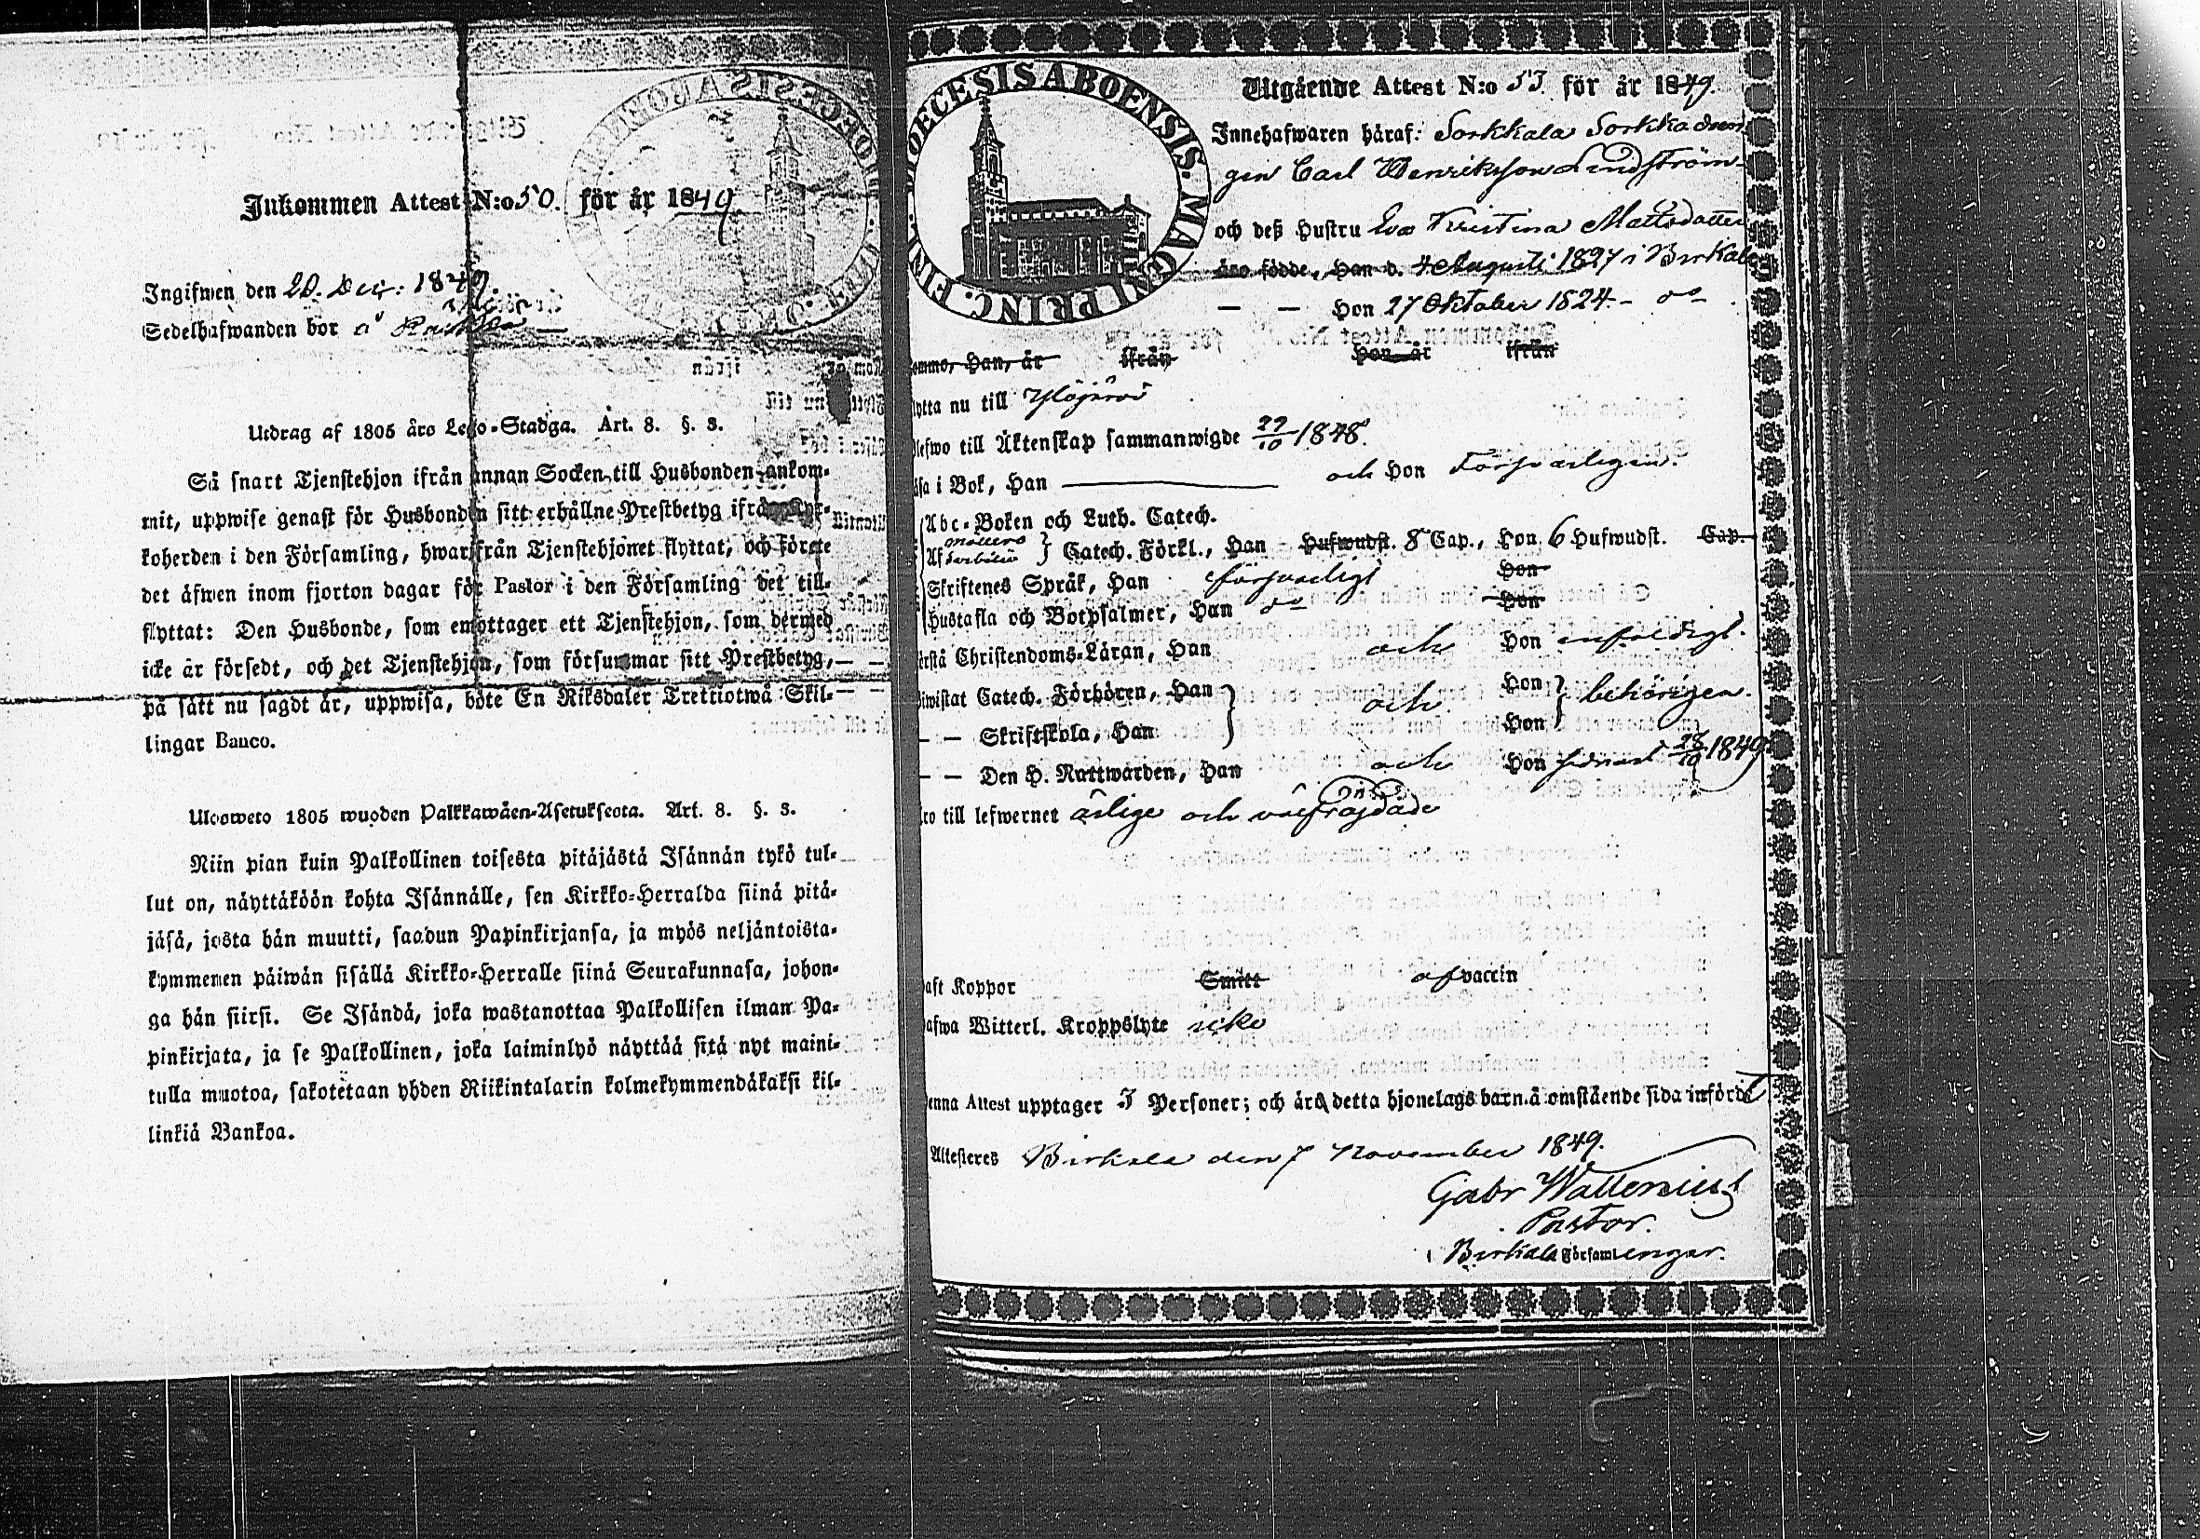 Inkommen Attest N:o 50. för år 1849
Ingifwen den 20. Dec. 1849.
Sedelhafwanden bor å
Utdrag af 1805 års Lego-Stadga. Art. 8. §. 3.
Så snart Tjenstehjon ifrån annan Socken till Husbonden ankom-
mit, uppwise genast för Husbonden sitt erhållne Prestbetyg ifrån Kyr-
koherden i den Församling, hwarifrån Tjenstehjonet flyttat, och förete
det äfwen inom fjorton dagar för Pastor i den Församling det till-
flyttat: Den Husbonde, som emottager ett Tjenstehjon, som dermed
icke är försedt, och det Tjenstehjon, som försummar sitt Prestbetyg,
på sått nu sagdt är, uppwisa, böte En Riksdaler Trettiotwå Skil-
lingar Banco.
Ulosweto 1805 wuoden Palkkawäen-Asetuksesta. Art. 8. §. 3.
Niin pian kuin Palkollinen toisesta pitäjästä Isännän tykö tul-
lut on, näyttäköön kohta Isännälle, sen Kirkko-Herralda siinä pitä-
jäsä, josta hän muutti, saadun Papinkirjansa, ja myös neljäntoista-
kymmenen päiwän sisällä Kirkko-Herralle siinä Seurakunnasa, johon-
ga hän siirsi. Se Isändä, joka wastanottaa Palkollisen ilman Pa-
pinkirjata, ja se Palkollinen, joka laiminlyö näyttää sitä nyt maini-
tulla muotoa, sakotetaan yhden Riikintalarin kolmekymmendäkaksi kil-
linkiä Bankoa.
DIOECESIS ABOENSIS. MAGNI PRINC. FINL.
Utgående Attest N:o 53 för år 1849.
Innehafwaren häraf: Sorkkala Sorkka dren
gen Carl Henriksson Lindström
och deß Hustru Eva Kristina Mattsdotter
äro födde, Han d. 4 Augusti 1827 i Birkala
— — Hon 27 Oktober 1824. — do
kommo, Han, år ifrån Hon år ifrån
flytta nu till Ylöjärvi
blefwo till Äktenskap sammanwigde 22/10 1848.
läsa i Bok, Han och Hon Försvarligen.
Abc-Boken och Luth. Catech.
Af Möllers Svebilii } Catech. Förkl., Han Hufwudst. 8 Cap., Hon 6 Hufwudst. Cap.
Skriftenes Språk, Han försvarligt Hon
Hustafla och Botpsalmer, Han do Hon
förstå Christendoms-Läran, Han och Hon enfaldigt.
biwistat Catech. Förhören, Han och Hon } behörigen.
— — Skriftskola, Han Hon
— — Den H. Nattwarden, Han och Hon senast 28/10 1849
äro till lefwernet ärlige och välfrägdade
haft Koppor Smitt af vaccin
hafwa Witterl. Kroppslyte icke
Denna Attest upptager 3 Personer; och är detta hjonelags barn å omstående sida infördt
Attesteres Birkala den 7 November 1849.
Gabr Wallenius
Pastor.
i Birkala Församlingar.